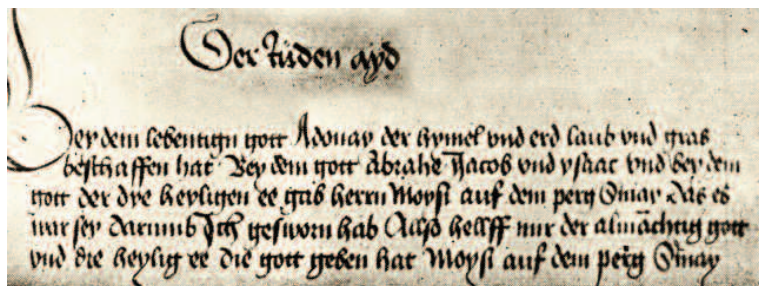 Der Juden ayd
Bey dem lebentign gott Adonay der hymel vnd erd laub vnd gras
beschaffen hat Bey dem gott Abrahe Jacob vnd ysaac vnd bey dem
gott der dye heyligen ee gab herrn Moysi auf dem perg Sinay das es
war sey darumb Ich gesworn hab Allso hellff mir der almächtig gott
vnd die heylig ee die gott geben hat Moysi auf dem perg Sinay